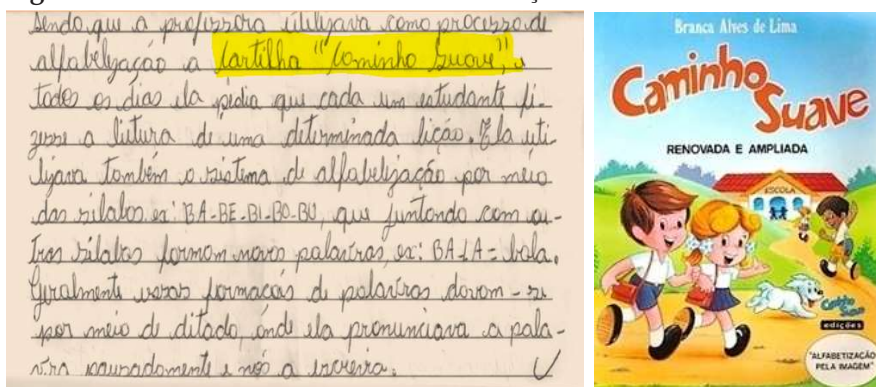 sendo que a professora utilizava como processo de
alfabelização a Cartilha "Caminho Suave", e
todos os dias ela pedia que cada um estudante fi-
zesse a leitura de uma determinada lição. Ela uti-
lizava também o sistema de alfabelização por meio
das silabas ex: BA-BE-BI-BO-BU, que juntando com ou-
tras silabas formam novas palavras, ex: BA+LA = bala.
Geralmente essas formações de palavras davam-se
por meio de ditado, onde ela pronunciava a pala-
vra pausadamente e nós a escrevia.
Branca Alves de Lima
Caminho
Suave
RENOVADA E AMPLIADA
ESCOLA
Caminho
Suave
edições
"ALFABETIZAÇÃO
PELA IMAGEM"